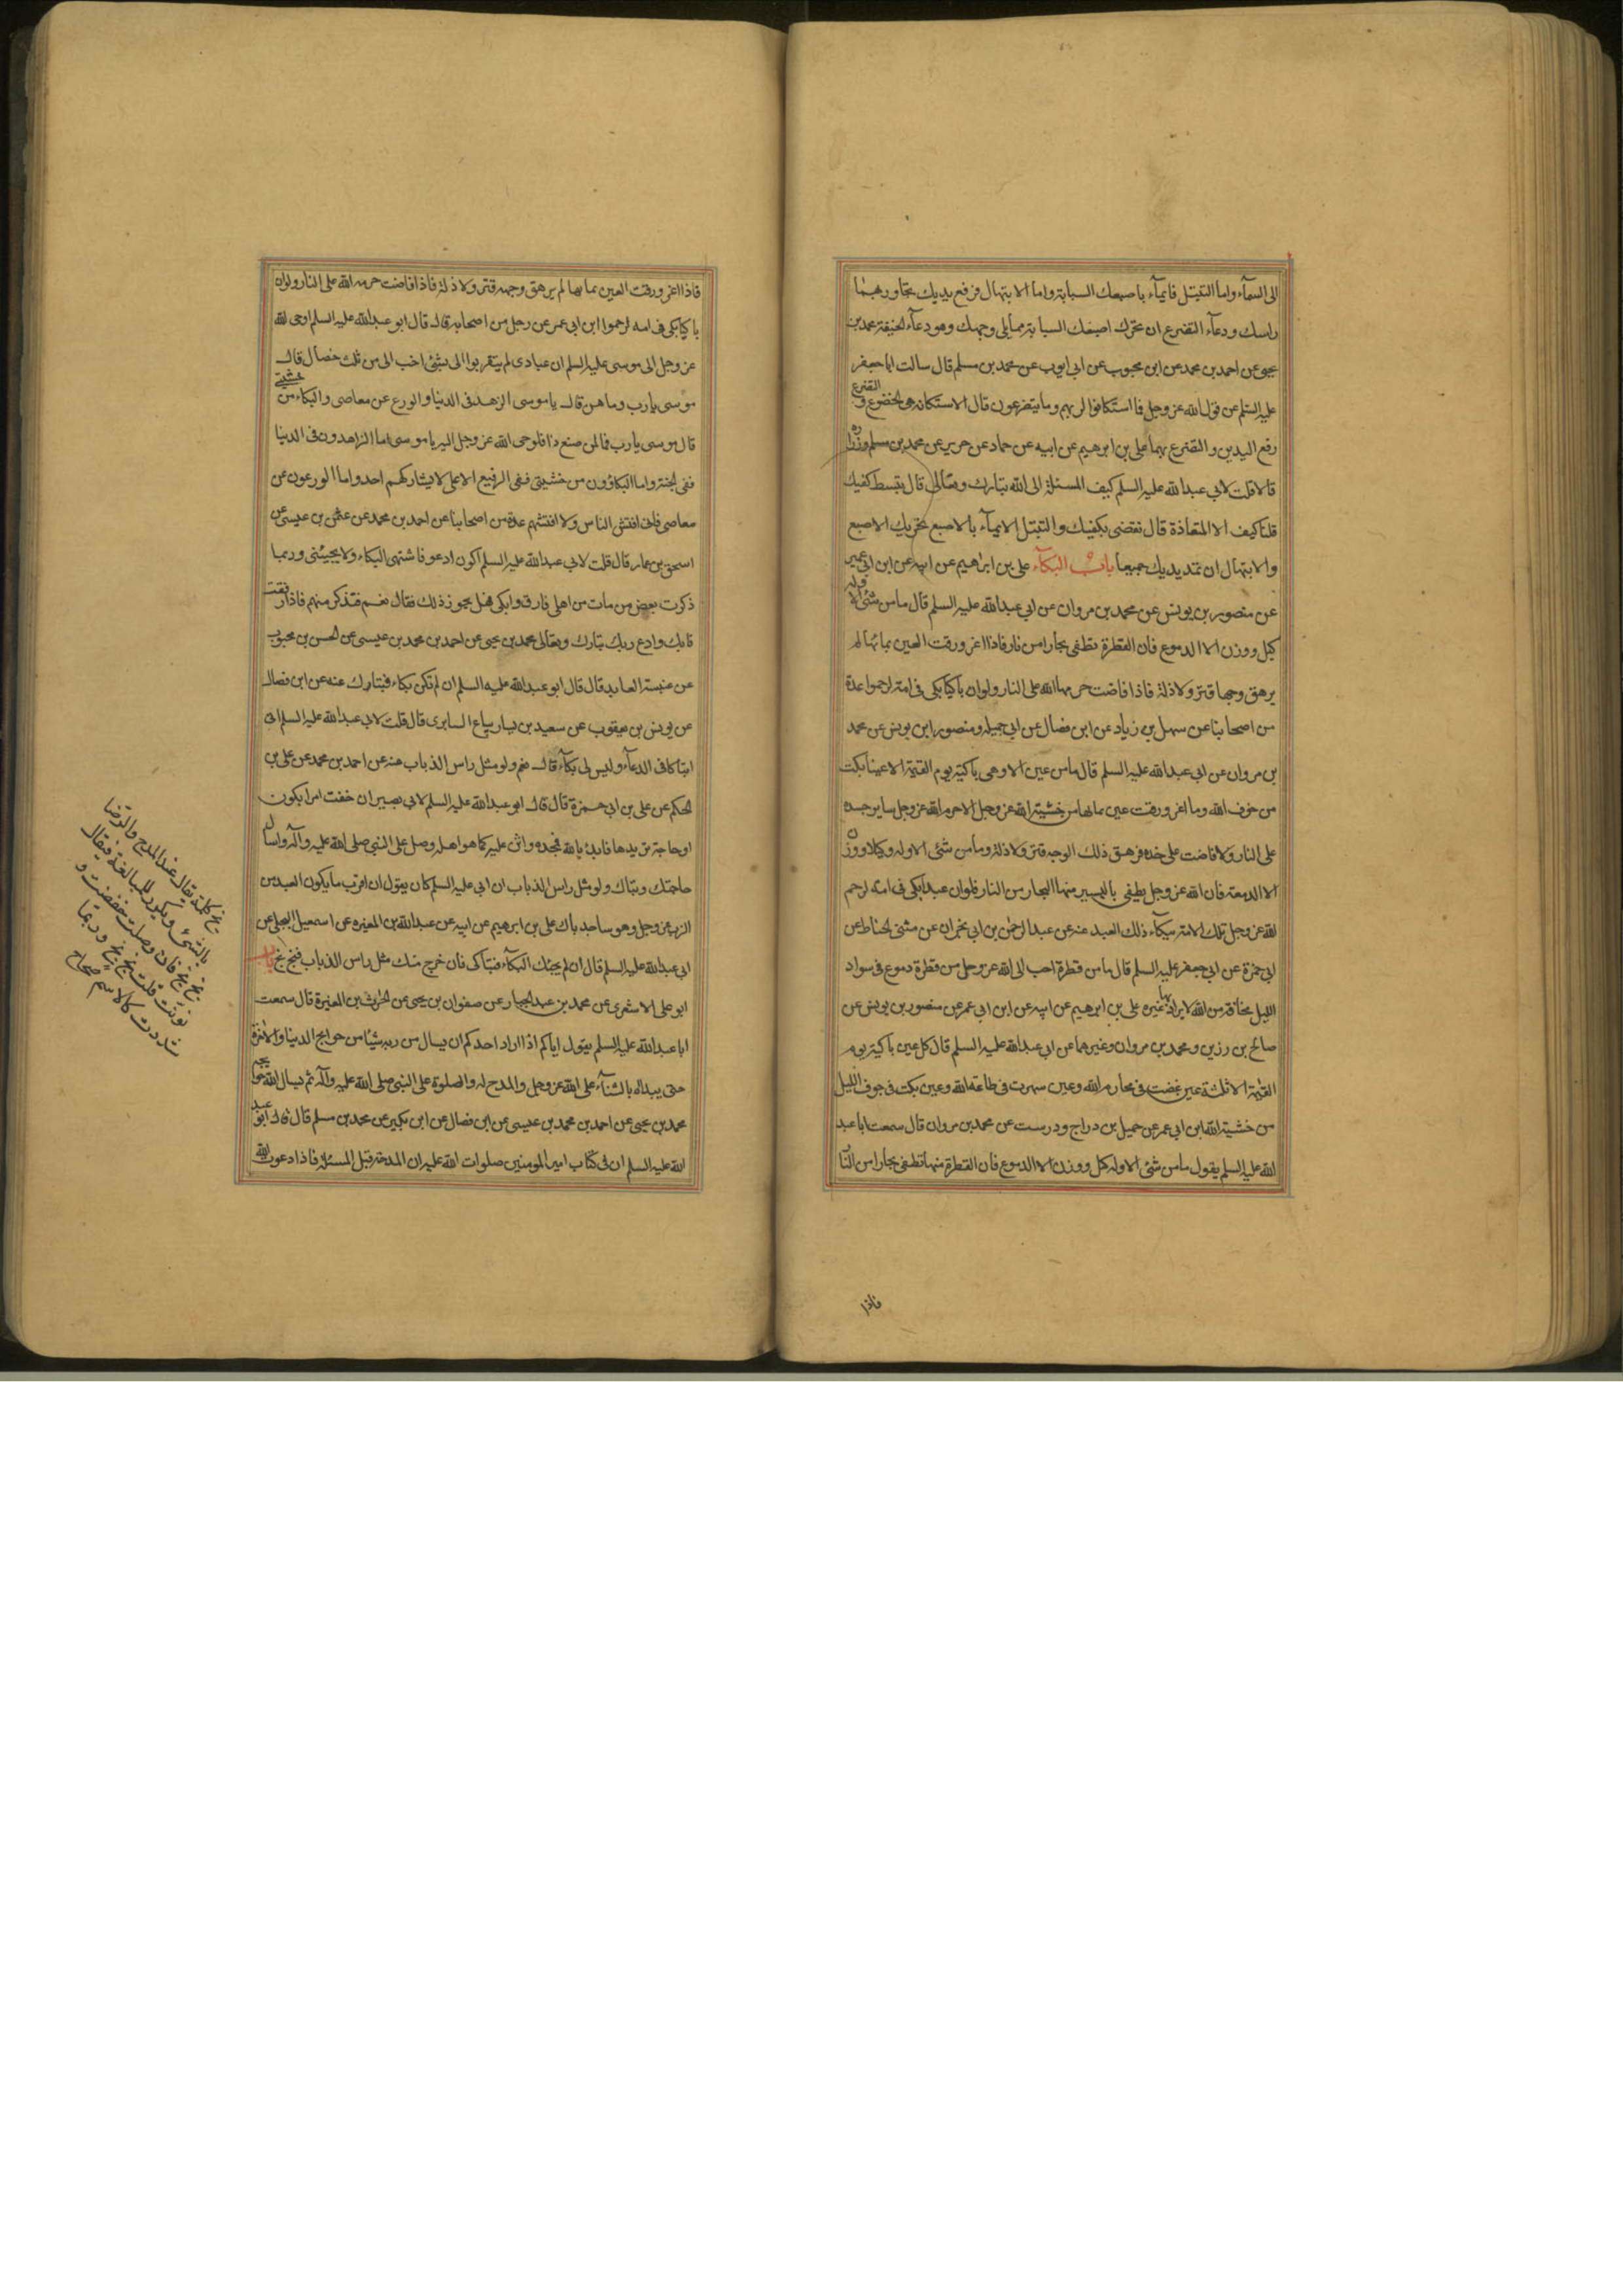 الى السمآء واما التبتل فايمآء باصبعك السبابة واما الابتهال فرفع يديك تجاوز بهما
راسك ودعآء التضرع ان تحرك اصبعك السبابة مما يلى وجهك وهو دعآء الخيفة محمد بن
يحيى عن احمد بن محمد عن ابن محبوب عن ابى ايوب عن محمد بن مسلم قال سالت ابا جعفر
عليه السلم عن قول الله عز وجل فما استكانوا لربهم وما يتضرعون قال الاستكانة هى الخضوع والتضرع
رفع اليدين والتضرع بهما على بن ابرهيم عن ابيه عن حماد عن حريز عن محمد بن مسلم وزرارة
قالا قلت لابى عبد الله عليه السلم كيف المسئلة الى الله تبارك وتعالى قال تبسط كفيك
قلنا كيف الاستعاذة قال تفضى بكفيك والتبتل الايمآء بالاصبع والتضرع تحريك الاصبع
والابتهال ان تمد يديك جميعا باب البكآء على بن ابراهيم عن ابيه عن ابن ابى عمير
عن منصور بن يونس عن محمد بن مروان عن ابى عبد الله عليه السلم قال ما من شئ الا وله
كيل ووزن الا الدموع فان القطرة تطفى بحارا من نار فاذا اغرورقت العين بمائها لم
يرهق وجها قتر ولا ذلة فاذا فاضت حرمها الله على النار ولو ان باكيا بكى فى امة لرحموا عدة
من اصحابنا عن سهل بن زياد عن ابن فضال عن ابى جميله ومنصور ابن يونس عن محمد
بن مروان عن ابى عبد الله عليه السلم قال ما من عين الا وهى باكية يوم القيمة الا عينا بكت
من خوف الله وما اغرورقت عين بمائها من خشية الله عز وجل الا حرم الله عز وجل ساير جسده
على النار ولا فاضت على خده فرهق ذلك الوجه قتر ولا ذلة وما من شئ الا وله كيل او وزن
الا الدمعة فان الله عز وجل يطفى باليسير منها البحار من النار فلو ان عبدا بكى فى امة لرحم
الله عز وجل تلك الامة ببكآء ذلك العبد عنه عن عبد الرحمن بن ابى نجران عن مثنى الحناط عن
ابى حمزة عن ابى جعفر عليه السلم قال ما من قطرة احب الى الله عز وجل من قطرة دموع فى سواد
الليل مخافة من الله لا يراد بها غيره على بن ابرهيم عن ابيه عن ابن ابى عمر عن منصور بن يونس عن
صالح بن رزين ومحمد بن مروان وغيرهما عن ابى عبد الله عليه السلم قال كل عين باكية يوم
القيمة الا ثلثة عين غضت فى محارم الله وعين سهرت فى طاعة الله وعين بكت فى جوف الليل
من خشية الله ابن ابى عمر عن جميل بن دراج ودرست عن محمد بن مروان قال سمعت ابا عبد
الله عليه السلم يقول ما من شئ الا وله كيل ووزن الا الدموع فان القطرة منها تطفى بحارا من النا
فاذا
فاذا اغرورقت العين بمائها لم يرهق وجهه قتر ولا ذلة فاذا فاضت حرمه الله على النار ولو ان
باكيا بكى فى امه لرحموا ابن ابى عمر عن رجل من اصحابه قال قال ابو عبد الله عليه السلم اوحى الله
عز وجل الى موسى عليه السلم ان عبادى لم يتقربوا الى بشئ احب الى من ثلث خصال قال
موسى يا رب وما هن قال يا موسى الزهد فى الدنيا والورع عن معاصى والبكاء من خشيتى
قال موسى يا رب فما لمن صنع ذا فاوحى الله عز وجل اليه يا موسى اما الزاهدون فى الدنيا
ففى الجنة واما البكاؤون من خشيتى ففى الرفيع الاعلى لا يشاركهم احد واما الورعون عن
معاصى فانى افتش الناس ولا افتشهم عدة من اصحابنا عن احمد بن محمد عن عثمن بن عيسى عن
اسحق بن عمار قال قلت لابى عبد الله عليه السلم اكون ادعو فاشتهى البكاء ولا يجيئنى وربما
ذكرت بعض من مات من اهلى فارق وابكى فهل يجوز ذلك فقال نعم فتذكرهم فاذا رققت
فابك وادع ربك تبارك وتعالى محمد بن يحيى عن احمد بن محمد بن عيسى عن الحسن بن محبوب
عن عنبسة العابد قال قال ابو عبد الله عليه السلم ان لم تكن بكاء فتباك عنه عن ابن فضال
عن يونس بن يعقوب عن سعيد بن يسار بياع السابرى قال قلت لابى عبد الله عليه السلم انى
اتباكا فى الدعآء وليس لى بكآء قال نعم ولو مثل راس الذباب عنه عن احمد بن محمد عن على بن
الحكم عن على بن ابى حمزة قال قال ابو عبد الله عليه السلم لابى بصير ان خفت امرا يكون
او حاجة تريدها فابدا بالله فمجده واثن عليه كما هو اهله وصل على النبى صلى الله عليه وآله واسال
حاجتك وتباك ولو مثل راس الذباب ان ابى عليه السلم كان يقول ان اقرب ما يكون العبد من
الرب عز وجل وهو ساجد باك على بن ابرهيم عن ابيه عن عبد الله بن المغيره عن اسمعيل البجلى عن
ابى عبد الله عليه السلم قال ان لم يجئك البكآء فتباكى فان خرج منك مثل راس الذباب فبخ بخ باب
ابو على الاشعرى عن محمد بن عبد الجبار عن صفوان بن يحيى عن الحرث بن المغيرة قال سمعت
ابا عبد الله عليه السلم يقول اياكم اذا اراد احدكم ان يسال من ربه شيئا من حوايج الدنيا والاخرة
حتى يبداء بالثنآء على الله عز وجل والمدح له والصلوة على النبى صلى الله عليه وآله ثم يسال الله حوايجه
محمد بن يحيى عن احمد بن محمد بن عيسى عن ابن فضال عن ابن بكير عن محمد بن مسلم قال قال ابو عبد
الله عليه السلم ان فى كتاب امير المومنين صلوات الله عليه ان المدحة قبل المسئلة فاذا دعوت الله
بخ كلمة يقال عند المدح والرضا
بالشئ ويكرر للمبالغة فيقال
بخ بخ فان وصلت خففت و
نونت فقلت بخ بخ وربما
شددت كالاسم صحاح